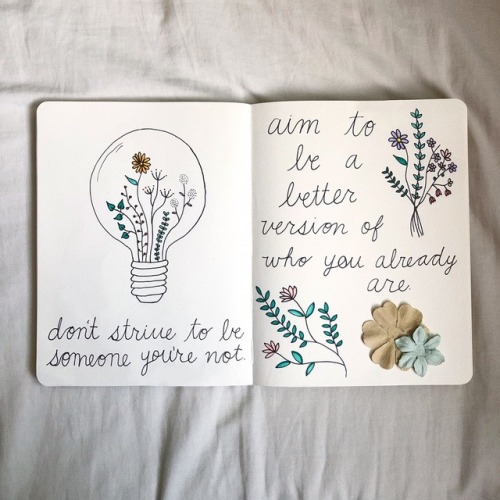 don't strive to be
someone you're not.
aim to
be a
better
version of
who you already
are.